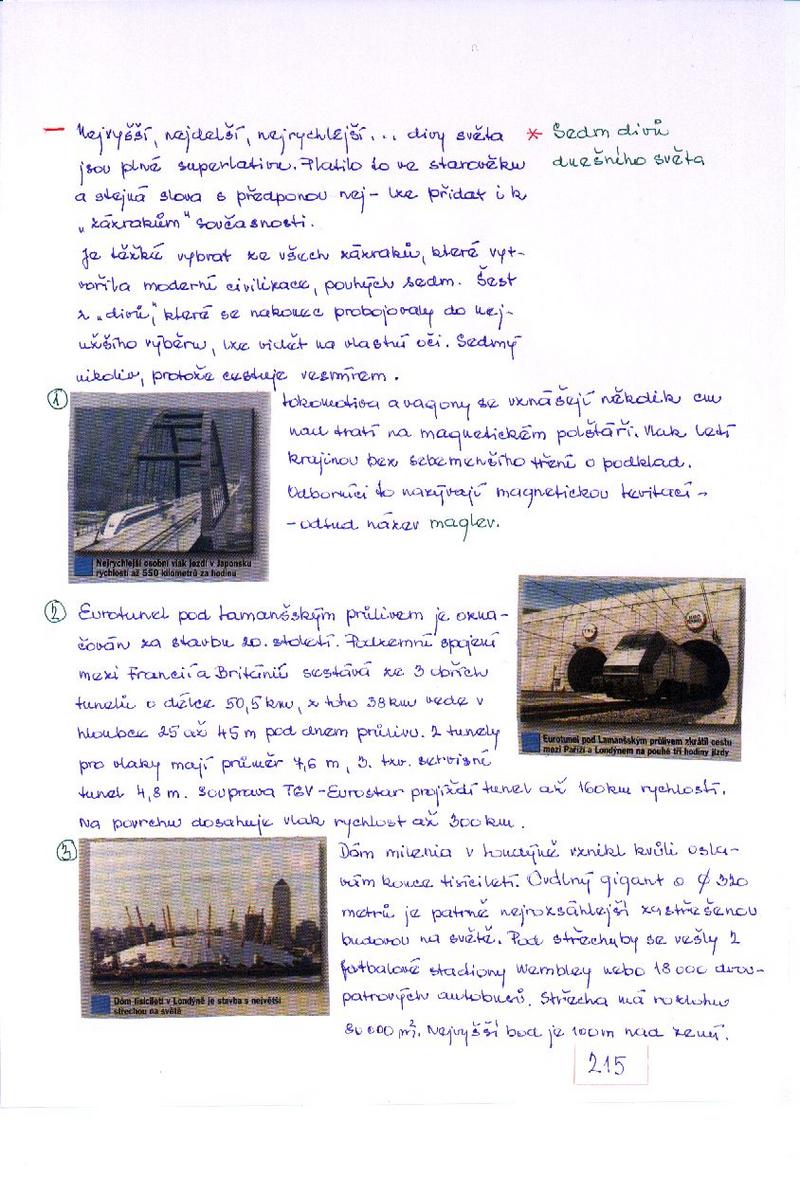 – Nejvyšší, nejdelší, nejrychlejší... divy světa
jsou plné superlativu. Platilo to ve starověku
a stejná slova s předponou nej- lze přidat i k
„zázrakům“ současnosti.
Je těžké vybrat ze všech zázraků, které vyt-
vořila moderní civilizace, pouhých sedm. Šest
z „divů“, které se nakonec probojovaly do nej-
užšího výběru, lze vidět na vlastní oči. Sedmý
nikoliv, protože cestuje vesmírem.
* Sedm divů
dnešního světa
1
Lokomotiva a vagony se vznášejí několik cm
nad tratí na magnetickém polštáři. Vlak letí
krajinou bez sebemenšího tření o podklad.
Odborníci to nazývají magnetickou levitací -
- odtud název maglev.
Nejrychlejší osobní vlak jezdí v Japonsku
rychlostí až 550 kilometrů za hodinu
2
Eurotunel pod Lamanšským průlivem je ozna-
čován za stavbu 20. století. Podzemní spojení
mezi Francií a Británií sestává ze 3 obřích
tunelů o délce 50,5 km, z toho 38 km vede v
hloubce 25 až 45 m pod dnem průlivu. 2 tunely
pro vlaky mají průměr 7,6 m, 3. tzv. servisní
tunel 4,8 m. Souprava TGV-Eurostar projíždí tunel až 160 km rychlostí.
Na povrchu dosahuje vlak rychlost až 300 km.
Eurotunel pod Lamanšským průlivem zkrátil cestu
mezi Paříží a Londýnem na pouhé tři hodiny jízdy
3
Dóm milenia v Londýně vznikl kvůli osla-
vám konce tisíciletí. Ovdlný gigant o ϕ 320
metrů je patrně nejrozsáhlejší zastřešenou
budovou na světě. Pod střechu by se vešly 2
fotbalové stadiony Wembley nebo 18 000 dvou-
patrových autobusů. Střecha má rozlohu
80 000 m². Nejvyšší bod je 100 m nad zemí.
Dóm tisíciletí v Londýně je stavba s největší
střechou na světě
215